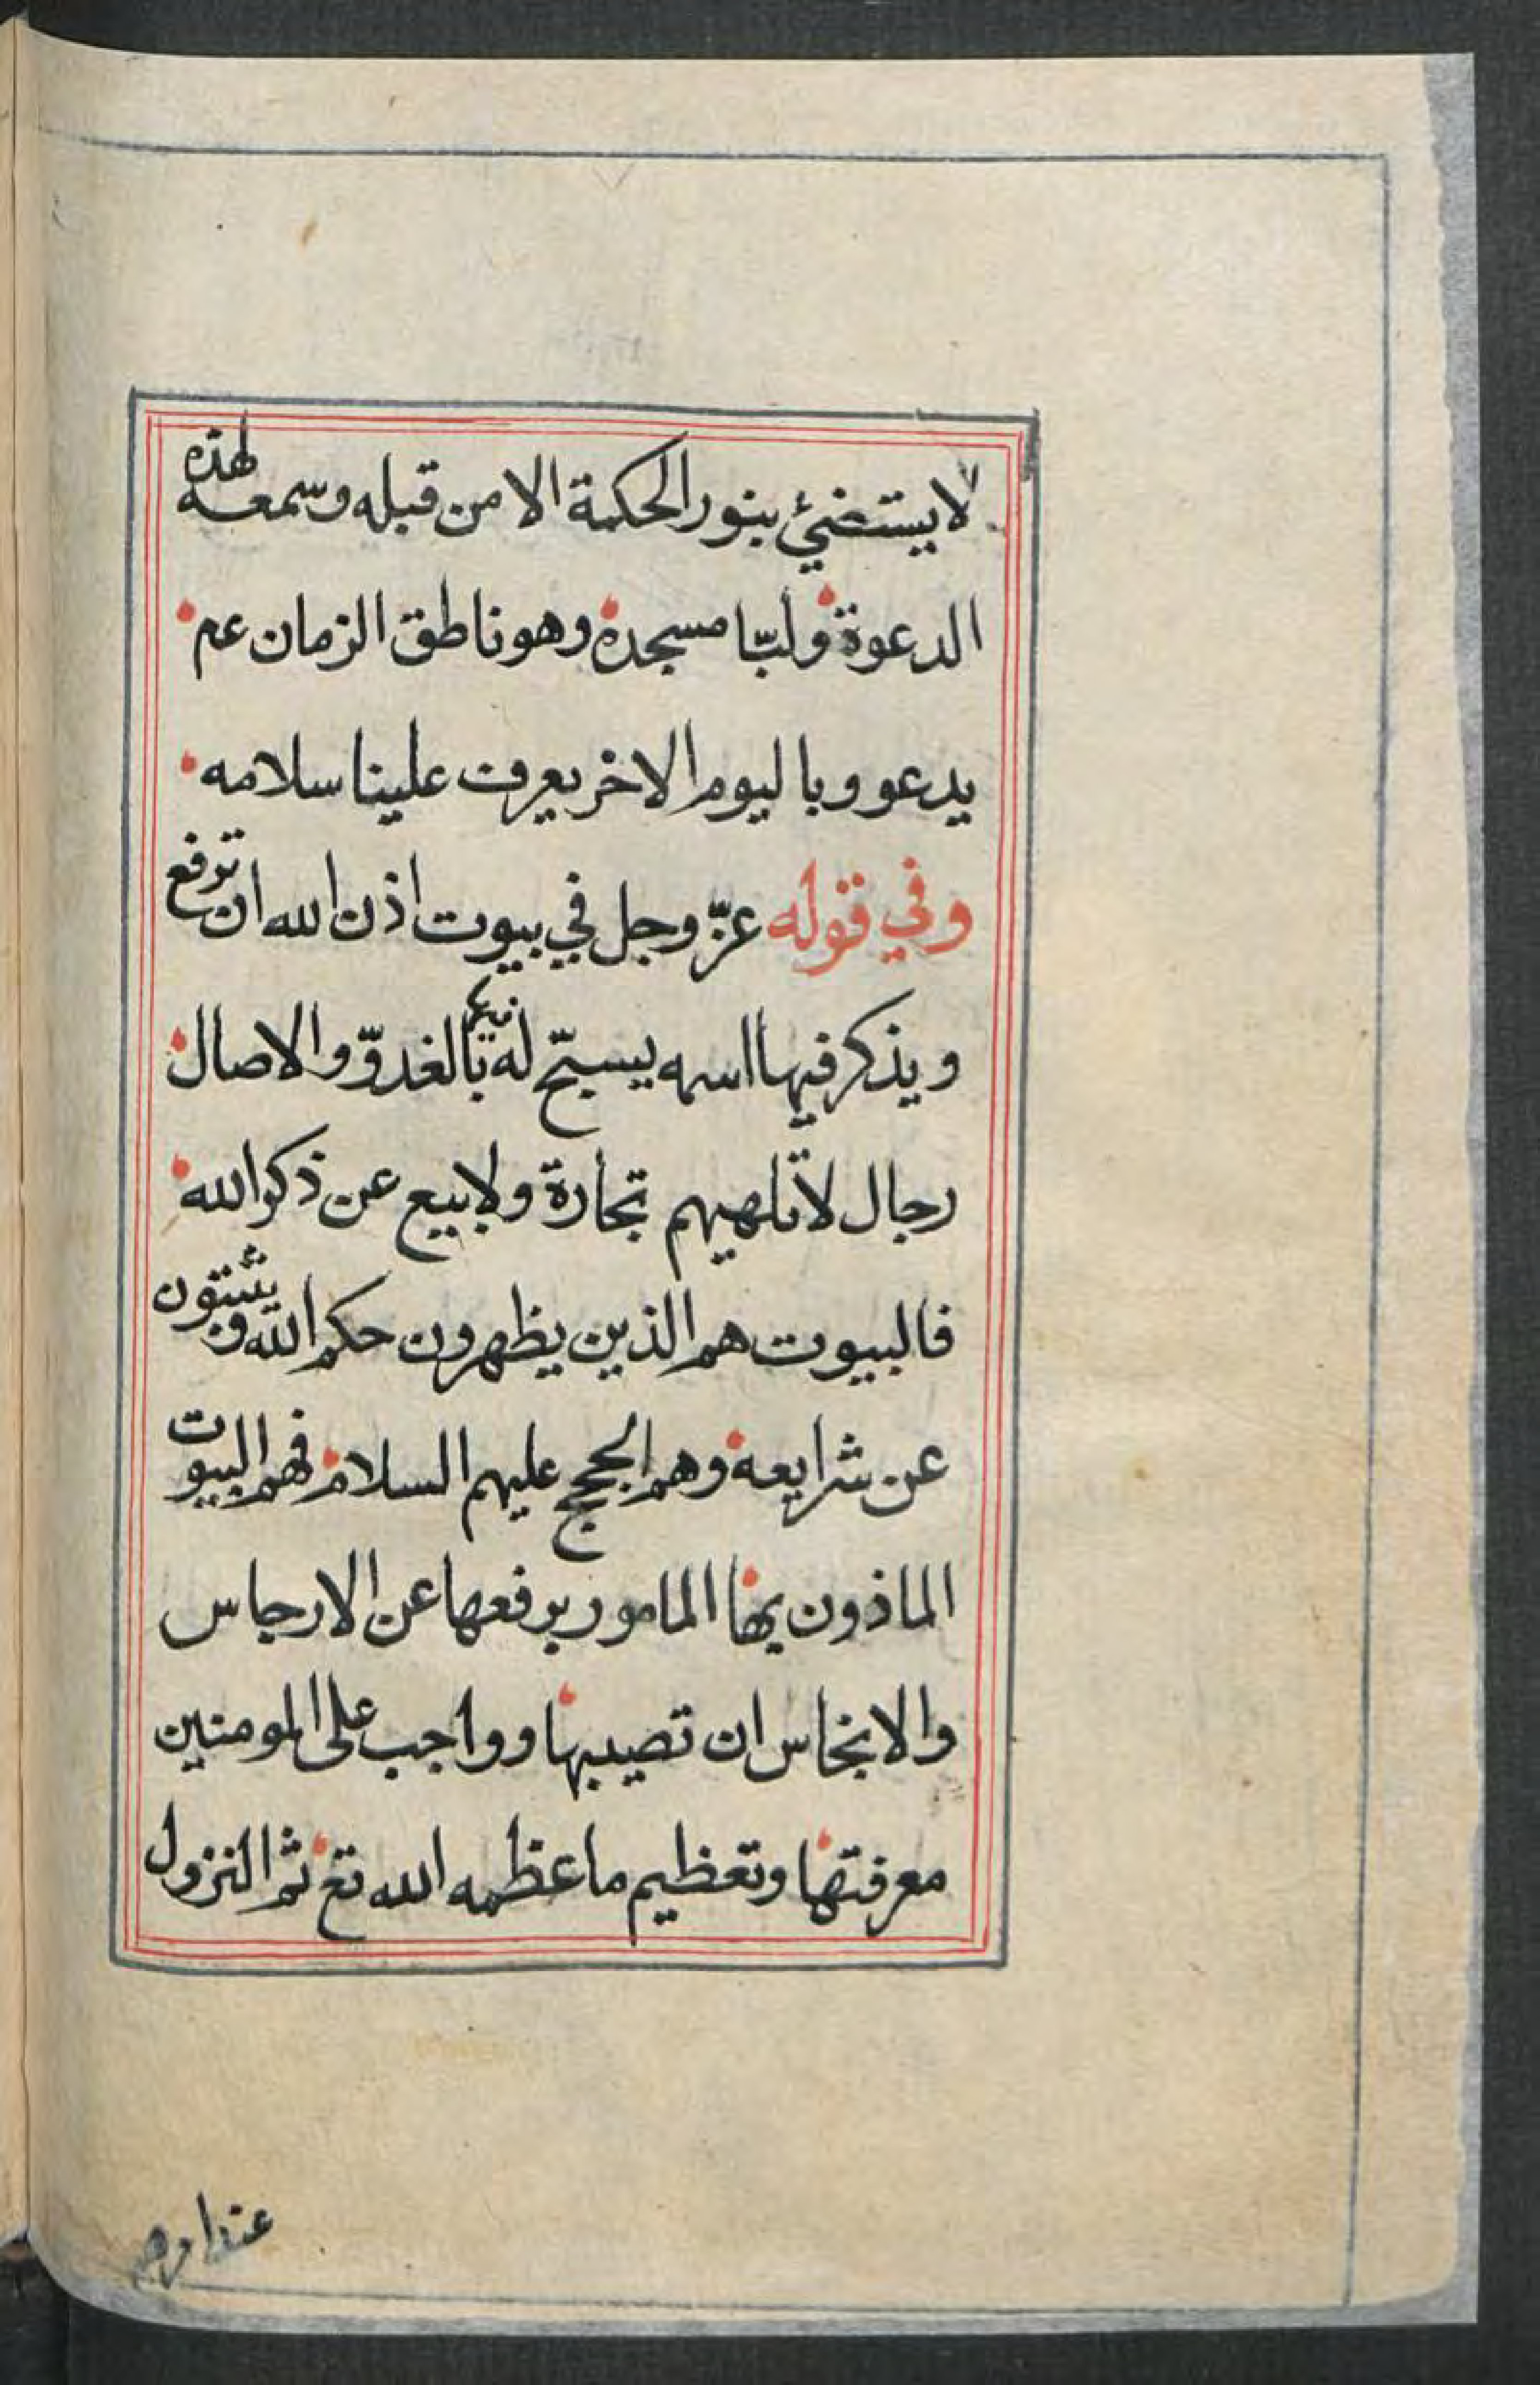 لا يستضيئ بنور الحكمة الا من قبله وسمعه لهذه
الدعوة ولبّا مسجده وهو ناطق الزمان عم
يدعو وباليوم الاخر يعرف علينا سلامه
وفي قوله عزّ وجل في بيوت اذن الله ان ترفع
ويذكر فيها اسمه يسبّح له فيها بالغدوّ والاصال
رجال لا تلهيهم تجارة ولا بيع عن ذكر الله
فالبيوت هم الذين يظهرون حكم الله و
عن شرايعه وهم الحجج عليهم السلام فهم البيوت
الماذون بها المامور برفعها عن الارجاس
والانجاس ان تصيبها وواجب على المومنين
معرفتها وتعظيم ما عظمه الله تع ثم النزول
عند امرهم